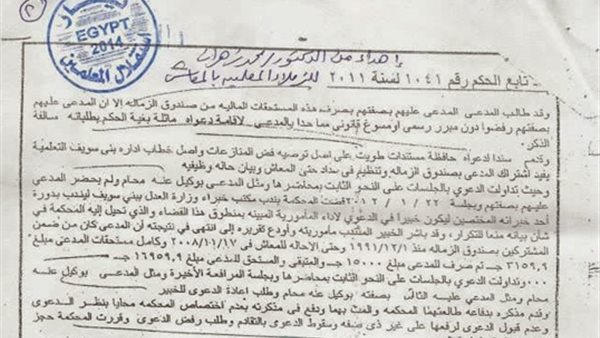 تيار
EGYPT
2014
استقلال المعلمين
إهداء من الدكتور / محمد زهران
للزملاء المعلمين بالمعاش
تابع الحكم رقم ١٠٤١ لسنة ٢٠١١
وقد طالب المدعى المدعى عليهم بصفتهم بصرف هذه المستحقات الماليه من صندوق الزماله إلا ان المدعى عليهم
بصفتهم رفضوا دون مبرر رسمى اومسوغ قانونى مما حدا بالمدعى لاقامة دعواه ماثلة بغية الحكم بطلباته سالفة
الذكر.
وقدم سندا لدعواه حافظة مستندات طويت على اصل توصيه فض المنازعات واصل خطاب اداره بنى سويف التعلمية
يفيد اشتراك المدعى بصندوق الزماله وتنظيم فى سداد حتى المعاش وبيان حاله وظيفيه
وحيث تداولت الدعوي بالجلسات على النحو الثابت بمحاضرها ومثل المدعى بوكيل عنه محام ولم يحضر المدعى
عليهم بصفتهم وبجلسة ٢٠١٢/١/٢٢ قضت المحكمة بندب مكتب خبراء وزارة العدل ببني سويف ليندب بدورة
أحد خبرائه المختصين ليكون خبيرا في الدعوي لاداء المامورية المبينه بمنطوق هذا القضاء والذي تحيل إليه المحكمة في
شأن بيانه منعا للتكرار، وقد باشر الخبير المنتدب ماموريته وأودع تقريره إلى انتهى في نتيجته أن المدعى كان من ضمن
المشتركين بصندوق الزماله منذ ١٩٩١/١٢/١ وحتى الاحاله للمعاش في ٢٠٠٨/١١/١٧ وكامل مستحقات المدعى مبلغ
٣١٥٩,٩ جـ تم صرف للمدعى مبلغ ١٥٠٠٠ جـ والمتبقى والمستحق للمدعى مبلغ ١٦٩٥٩,٩ جـ
٠٠٠ وتداولت الدعوي بالجلسات على النحو الثابت بمحاضرها وبجلسة المرافعة الأخيرة ومثل المدعى بوكيل عنه
محام ومثل المدعى عليه الثالث بصفته بوكيل عنه محام وطلب اعادة الدعوى للخبير
وقدم مذكره بدفاعه طالعتها المحكمه والمت بها ودفع فى مذكرته بعدم اختصاص المحكمه محليا بنظر الدعوى
وعدم قبول الدعوى لرفعها على غير ذى صفه وسقوط الدعوى بالتقادم وطلب رفض الدعوى وقررت المحكمة حجز